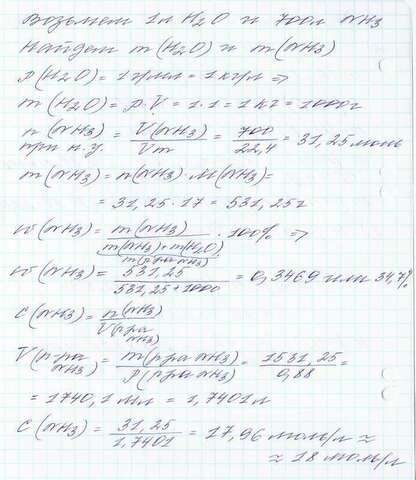 Возьмем 1л H2O и 700л NH3
Найдем m(H2O) и m(NH3)
ρ(H2O) = 1 г/мл = 1 кг/л =>
m(H2O) = ρ·V = 1·1 = 1 кг = 1000г
n(NH3) при н.у. = V(NH3)/Vm = 700/22,4 = 31,25 моль
m(NH3) = n(NH3)·M(NH3) =
= 31,25·17 = 531,25г
w(NH3) = m(NH3)/(m(NH3)+m(H2O)) · 100% =>
m(р-ра NH3)
w(NH3) = 531,25/(531,25+1000) = 0,3469 или 34,7%
C(NH3) = n(NH3)/V(р-ра NH3)
V(р-ра NH3) = m(р-ра NH3)/ρ(р-ра NH3) = 1531,25/0,88 =
= 1740,1 мл = 1,7401л
C(NH3) = 31,25/1,7401 = 17,96 моль/л ≈
≈ 18 моль/л